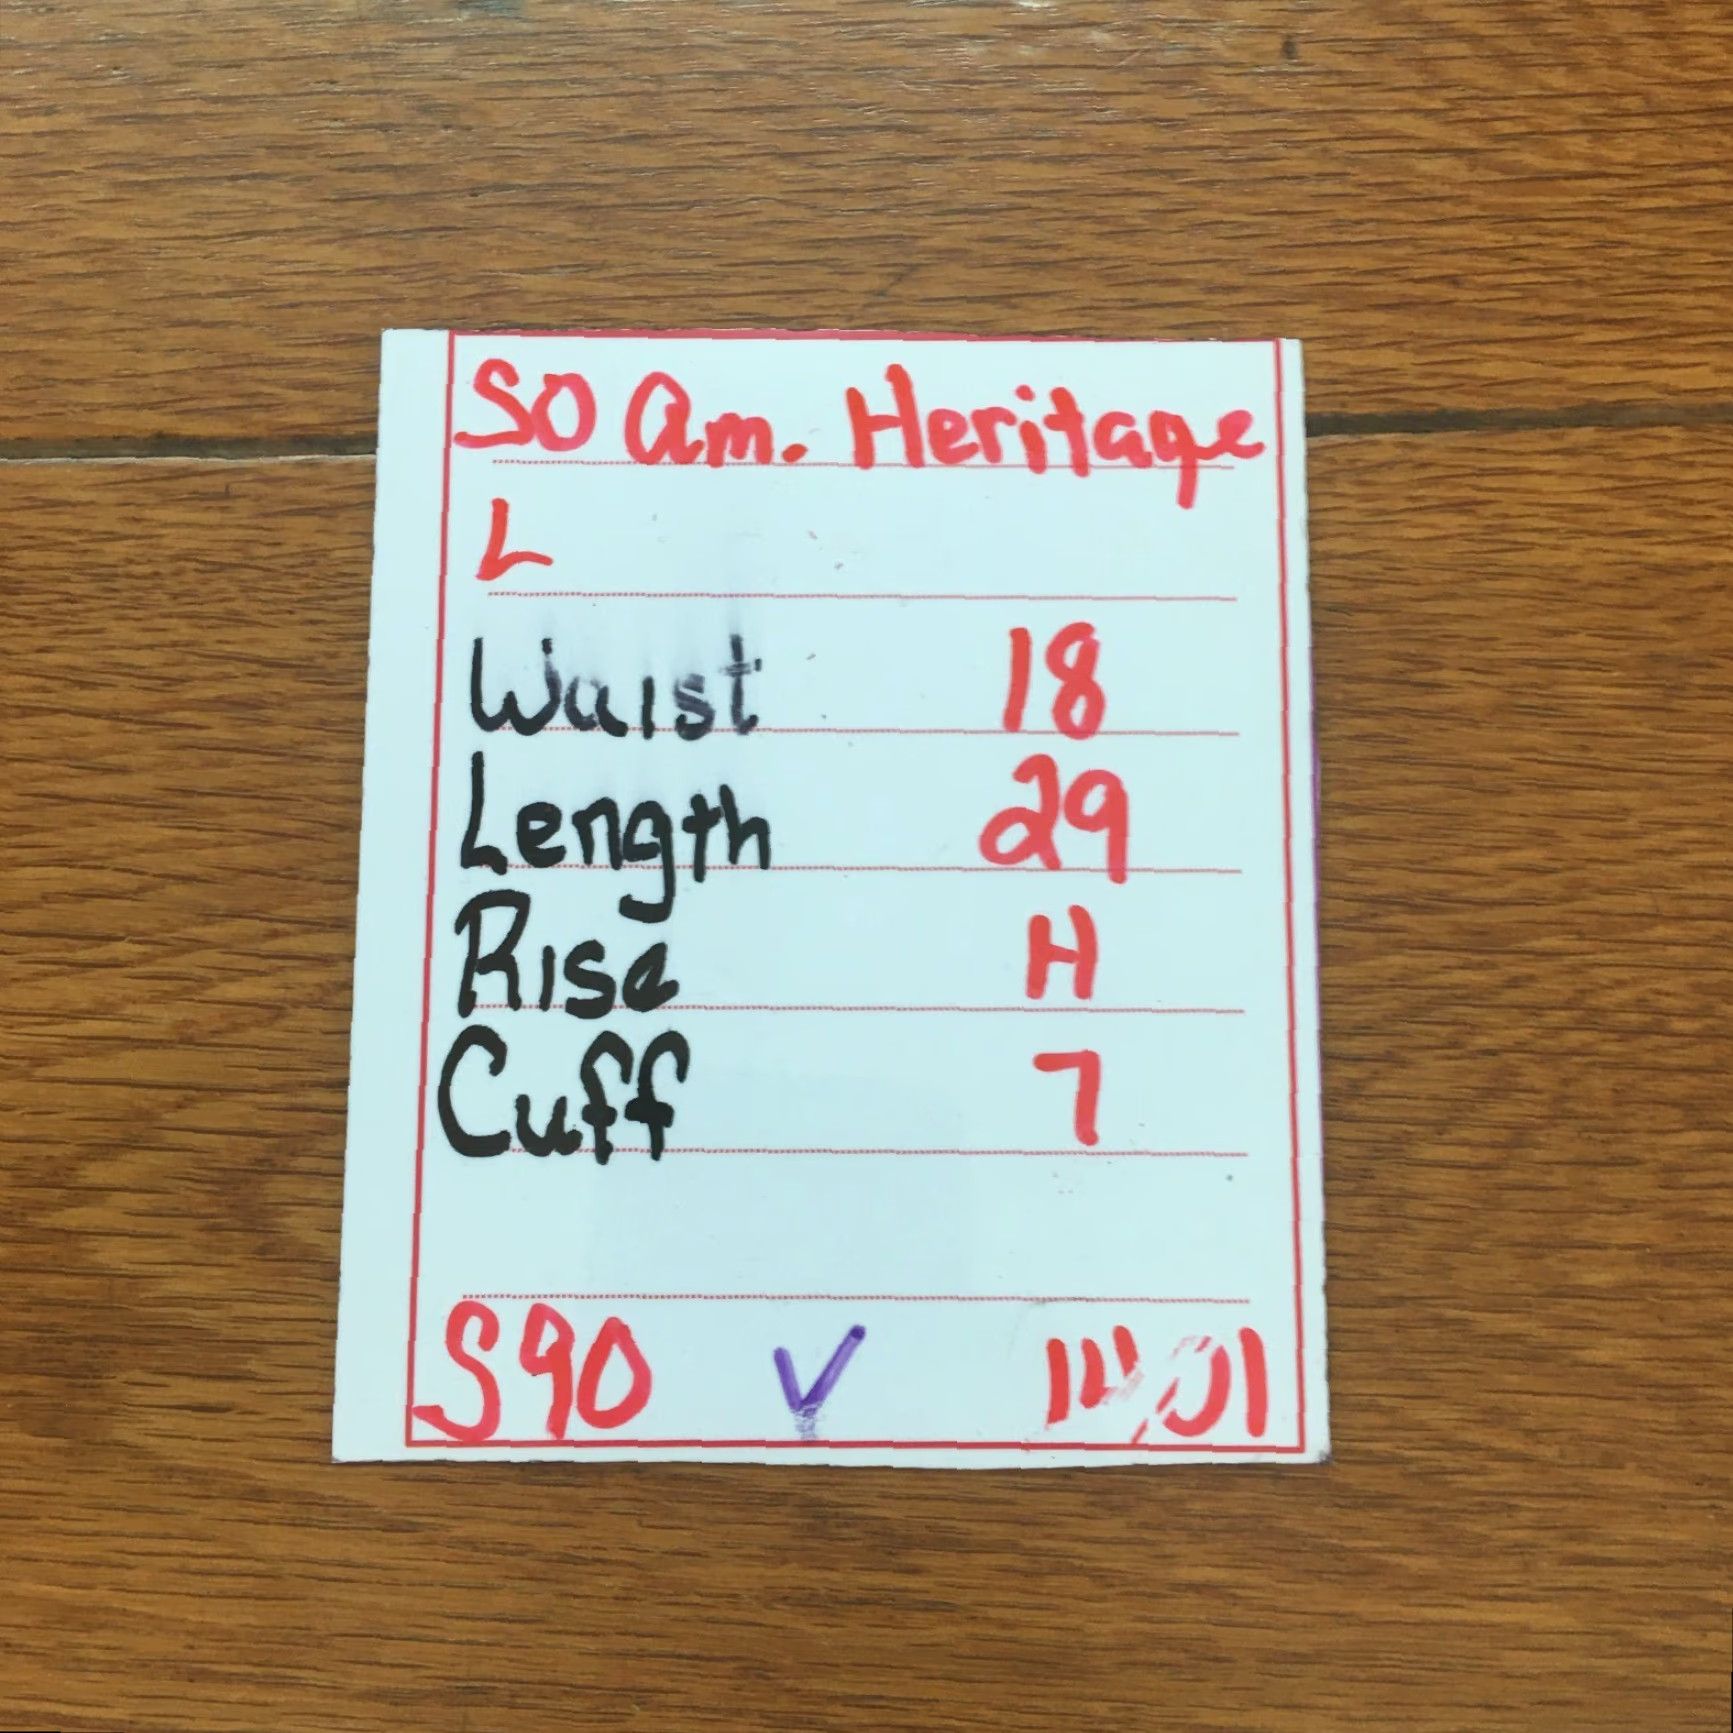 SO Am. Heritage
L
Waist 18
Length 29
Rise H
Cuff 7
S90 V